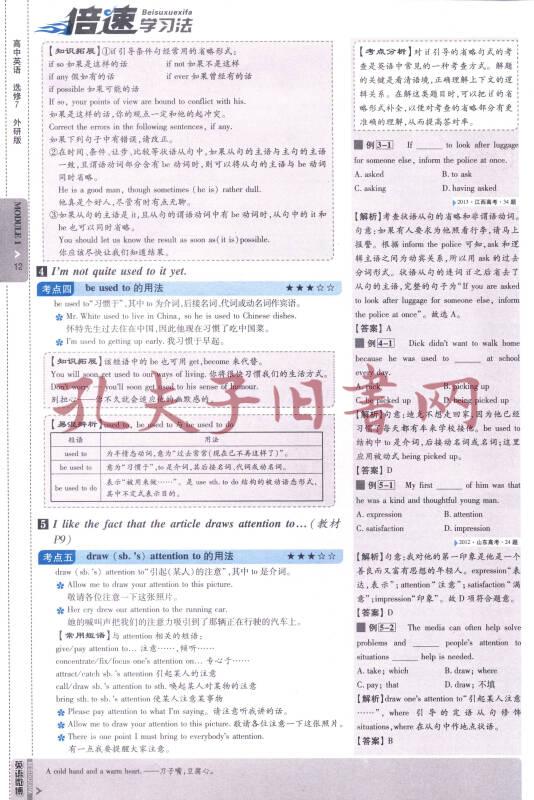 倍速学习法
Beisuxuexifa
高中英语 选修7 外研版
MODULE 1
12
【知识拓展】①if引导条件句经常用的省略形式:
if so 如果是这样的话 if not 如果不是这样
if any 假如有的话 if ever 如果曾经有的话
if possible 如果可能的话
If so, your points of view are bound to conflict with his.
如果是这样的话,你的观点一定和他的起冲突。
Correct the errors in the following sentences, if any.
如果下列句子中有错误,请改正。
②在时间、条件、让步、比较等状语从句中,如果从句的主语与主句的主语
一致,且谓语动词部分含有be动词时,则可以将从句的主语与be动词
同时省略。
He is a good man, though sometimes (he is) rather dull.
他真是个好人,尽管有时有点无聊。
③如果从句的主语是it,且从句的谓语动词中有be动词时,从句中的it和
be也可以同时省略。
You should let us know the result as soon as(it is)possible.
你应该尽快让我们知道结果。
4 I'm not quite used to it yet.
考点四 be used to 的用法 ★★★☆☆
be used to“习惯于”,其中to为介词,后接名词、代词或动名词作宾语。
Mr. White used to live in China, so he is used to Chinese dishes.
怀特先生过去住在中国,因此他现在习惯了吃中国菜。
I'm used to getting up early. 我习惯于早起。
【知识拓展】该短语中的be也可用get,become来代替。
You will soon get used to our ways of living. 你将很快习惯我们的生活方式。
Don't worry you'll soon get used to his sense of humour.
别担心——你不久就会适应他的幽默感的
孔夫子旧书网
【易混辨析】used to, be used to 与 be used to do
短语 用法
used to 为不情态动词,意为“过去常常(现在已不再这样了)”。
be used to 意为“习惯于”,to是介词,其后接名词、代词或动名词。
be used to do 表示“被用来做……”。是use sth. to do结构的被动语态形式,
其中不定式表示目的。
5 I like the fact that the article draws attention to…(教材
P9)
考点五 draw (sb.'s) attention to 的用法 ★★★☆☆
draw (sb.'s) attention to“引起(某人)的注意”,其中to是介词。
Allow me to draw your attention to this picture.
敬请各位注意一下这张照片。
Her cry drew our attention to the running car.
她的喊叫声把我们的注意力吸引到了那辆正在行驶的汽车上。
【常用短语】与attention相关的短语:
give/pay attention to… 注意……,倾听……
concentrate/fix/focus one's attention on… 专心于……
attract/catch sb.'s attention 引起某人的注意
call/draw sb.'s attention to sth. 唤起某人对某物的注意
bring sth. to sb.'s attention 使某人注意某事物
Please pay attention to what I'm saying. 请注意听我讲的话。
Allow me to draw your attention to this picture. 敬请各位注意一下这张照片。
There is one point I must bring to everybody's attention.
有一点我要提醒大家注意。
【考点分析】对if引导的省略句式的考
查是英语中常见的一种考查方式。解题
的关键是看清语境,正确理解上下文的逻
辑关系。在解这类题目时,可以把if的省
略形式补全,以使对考查的省略部分有更
准确的理解,从而提高答对率。
例3-1 If ______ to look after luggage
for someone else, inform the police at once.
A. asked B. to ask
C. asking D. having asked
2013·江西高考·34题
【解析】考查状语从句的省略和非谓语动词。
句意:如果有人要求为他照看行李,请马上
报警。根据inform the police可知,ask和逻
辑主语之间为动宾关系,所以用ask的过去
分词形式。状语从句的连词if之后省去了
从句的主语,完整的句子为“If you are asked
to look after luggage for someone else, inform
the police at once”。故选A。
【答案】A
例4-1 Dick didn't want to walk home
because he was used to ______ at school
every day.
A. pick B. picking up
C. be picked up D. being picked up
【解析】句意:迪克不想走回家,因为他已经
习惯了每天都有车来学校接他。be used to
结构中to是介词,后接动名词或名词;这里
应用被动式being picked up。
【答案】D
例5-1 My first ______ of him was that
he was a kind and thoughtful young man.
A. expression B. attention
C. satisfaction D. impression
2012·山东高考·24题
【解析】句意:我对他的第一印象是他是一个
善良而又富有思想的年轻人。expression“表
达,表示”;attention“注意”;satisfaction“满
意”;impression“印象”。故D项符合题意。
【答案】D
例5-2 The media can often help solve
problems and ______ people's attention to
situations ______ help is needed.
A. take; which B. draw; where
C. pay; that D. draw; 不填
【解析】draw one's attention to“引起某人注意
……”,where引导的定语从句修饰
situations,where在从句中作地点状语。
【答案】B
英语谚语
A cold hand and a warm heart.——刀子嘴,豆腐心。